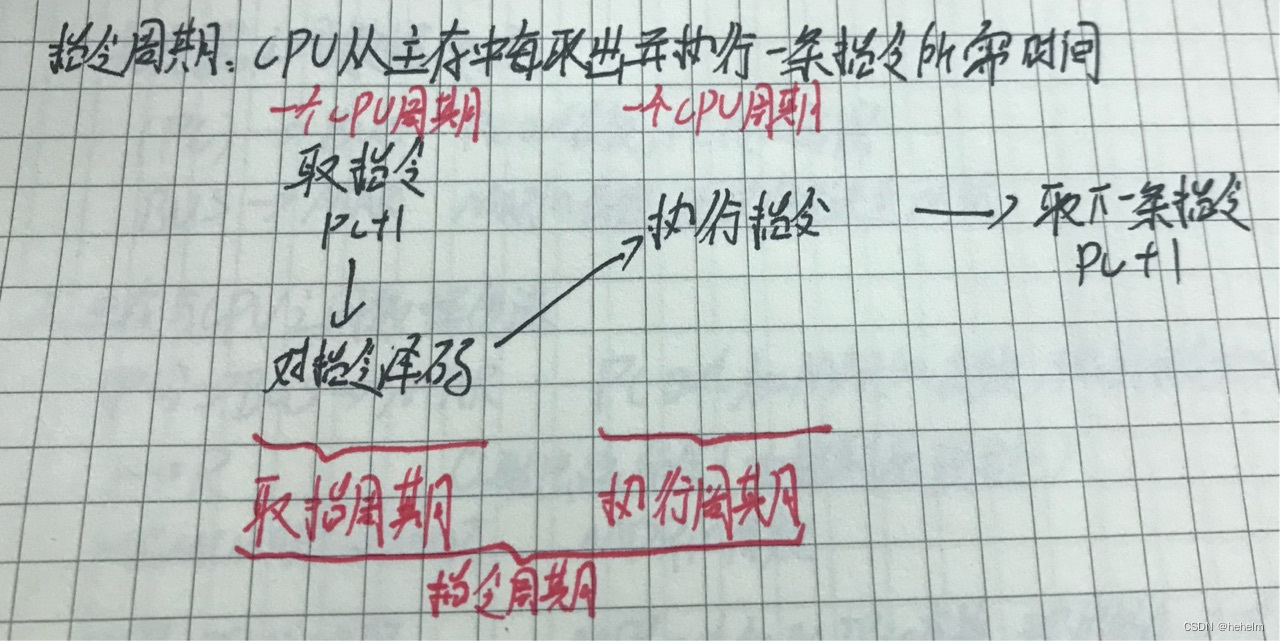 指令周期:CPU从主存中每取出并执行一条指令所需时间
一个CPU周期 一个CPU周期
取指令
PC+1
执行指令
取下一条指令
PC+1
对指令译码
取指周期 执行周期
指令周期
CSDN @hehelm